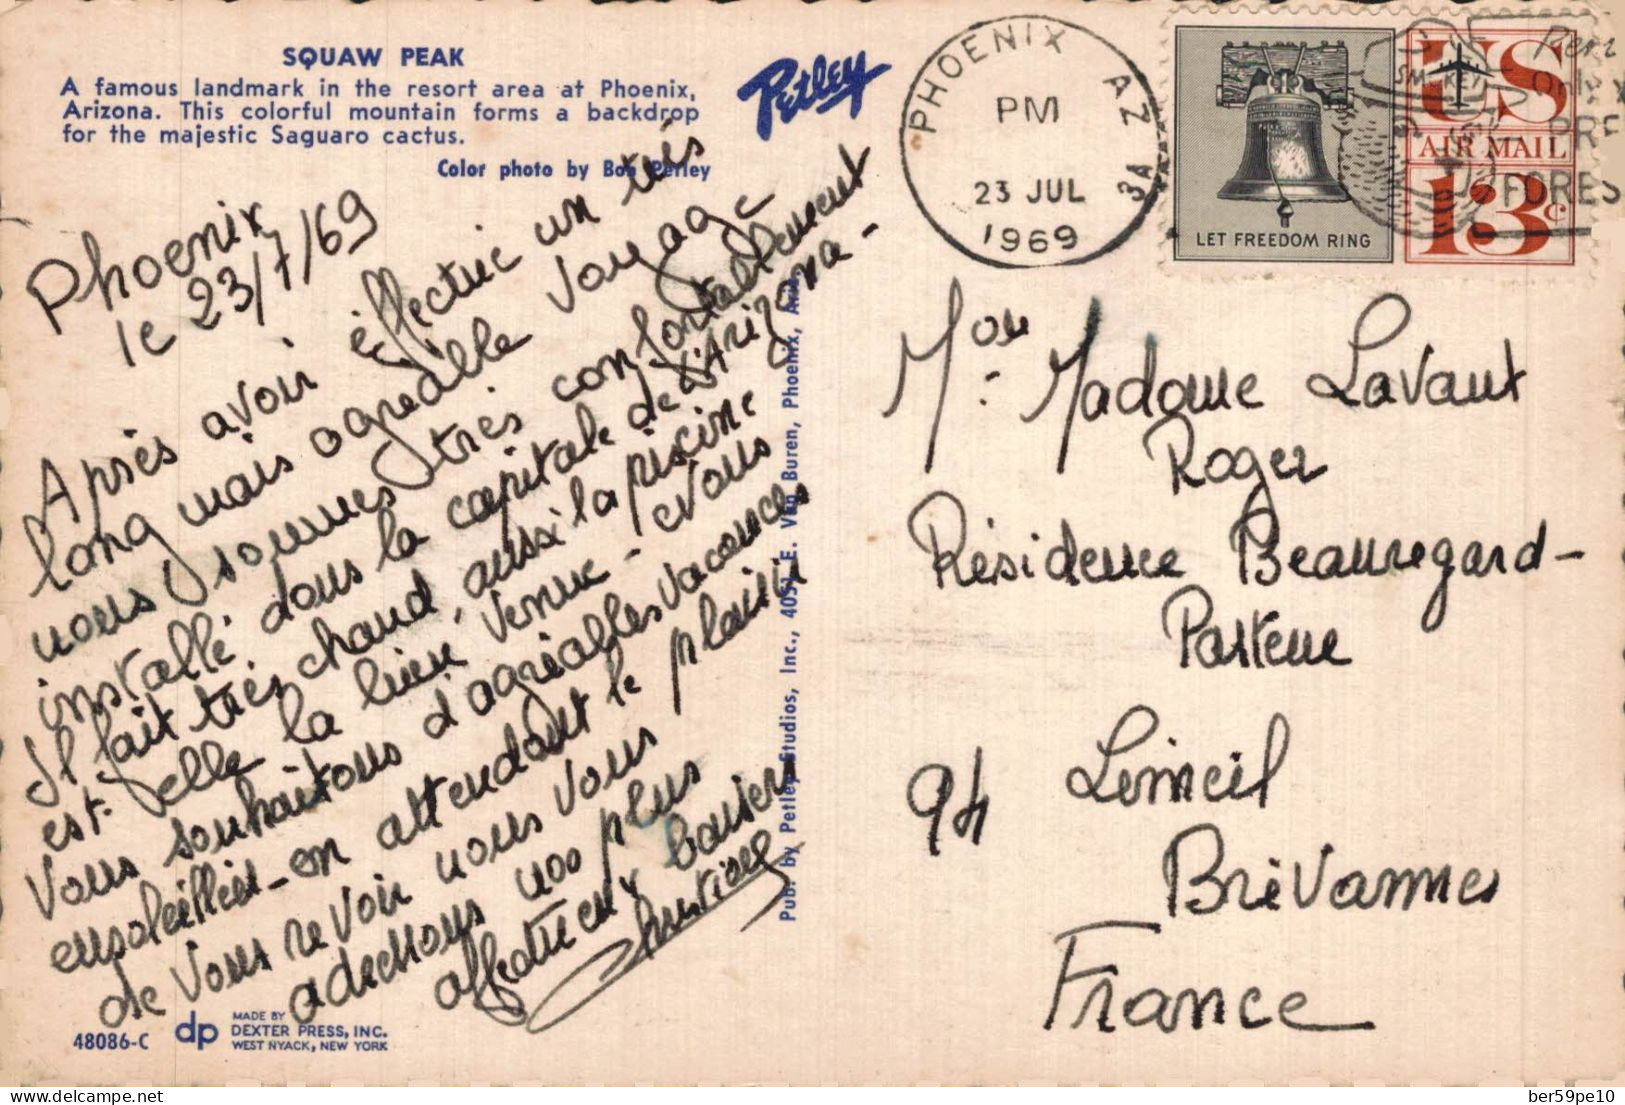 SQUAW PEAK
A famous landmark in the resort area at Phoenix,
Arizona. This colorful mountain forms a backdrop
for the majestic Saguaro cactus.
Color photo by Bob Petley
Petley
PHOENIX AZ
PM
23 JUL
1969
3A
LET FREEDOM RING
US
AIR MAIL
13c
SMOKEY
ONLY
PRE
FORES
Phoenix
le 23/7/69
Après avoir effectué un très
long mais agréable voyage
nous sommes très confortablement
installé dans la capitale de l'Arizona-
Il fait très chaud, aussi la piscine
est-elle la bien venue - Nous
vous souhaitons d'agréables vacances
ensoleillées - en attendant le plaisir
de vous revoir nous vous
adressons nos plus
affectueux baisers
Pub. by Petley Studios, Inc., 4051 E. Van Buren, Phoenix, Ariz.
Madame Lavaut
Roger
Résidence Beauregard-
Pasteur
94 Limeil
Brévannes
France
48086-C
dp
MADE BY
DEXTER PRESS, INC.
WEST NYACK, NEW YORK
delcampe.net
ber59pe10